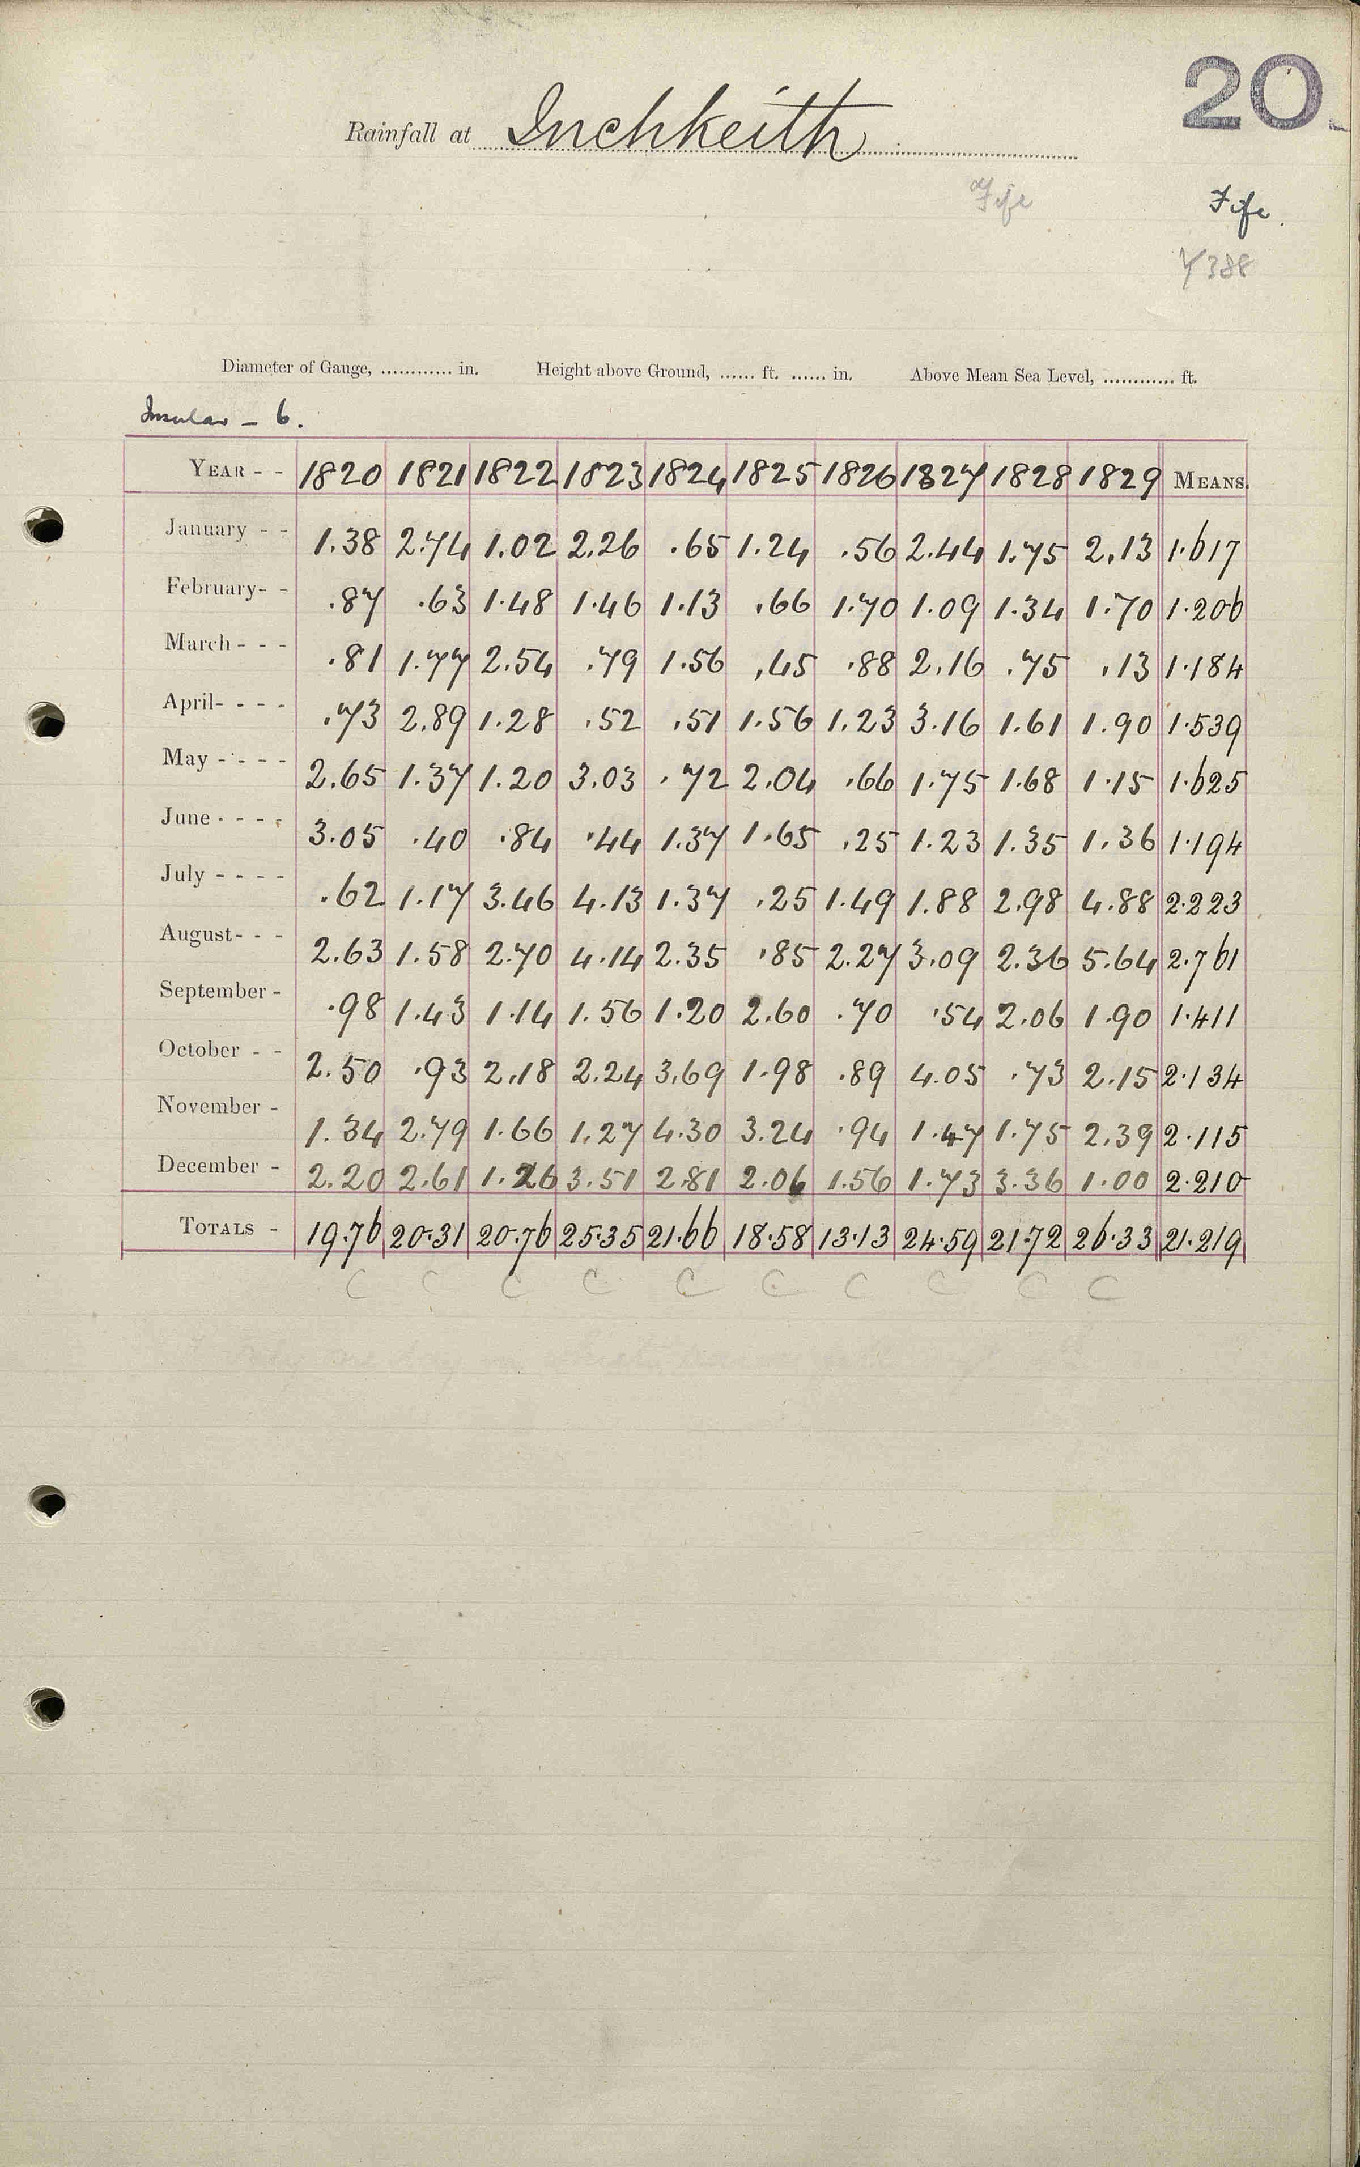 20
Rainfall at Inchkeith
Fife Fife.
Diameter of Gauge, ............ in. Height above Ground, ...... ft. ...... in. Above Mean Sea Level, ............ ft.
Insular - 6.
YEAR - - 1820 1821 1822 1823 1824 1825 1826 1827 1828 1829 MEANS.
January - - 1.38 2.74 1.02 2.26 .65 1.24 .56 2.44 1.75 2.13 1.617
February- - .87 .63 1.48 1.46 1.13 .66 1.70 1.09 1.34 1.70 1.206
March - - - .81 1.77 2.54 .79 1.56 .45 .88 2.16 .75 .13 1.184
April- - - - .73 2.89 1.28 .52 .51 1.56 1.23 3.16 1.61 1.90 1.539
May - - - - 2.65 1.37 1.20 3.03 .72 2.04 .66 1.75 1.68 1.15 1.625
June - - - - 3.05 .40 .84 .44 1.37 1.65 .25 1.23 1.35 1.36 1.194
July - - - - .62 1.17 3.46 4.13 1.37 .25 1.49 1.88 2.98 4.88 2.223
August- - - 2.63 1.58 2.70 4.14 2.35 .85 2.27 3.09 2.36 5.64 2.761
September - .98 1.43 1.14 1.56 1.20 2.60 .70 .54 2.06 1.90 1.411
October - - 2.50 .93 2.18 2.24 3.69 1.98 .89 4.05 .73 2.15 2.134
November - 1.34 2.79 1.66 1.27 4.30 3.24 .94 1.47 1.75 2.39 2.115
December - 2.20 2.61 1.26 3.51 2.81 2.06 1.56 1.73 3.36 1.00 2.210
TOTALS - 19.76 20.31 20.76 25.35 21.66 18.58 13.13 24.59 21.72 26.33 21.219
C C C C C C C C C C